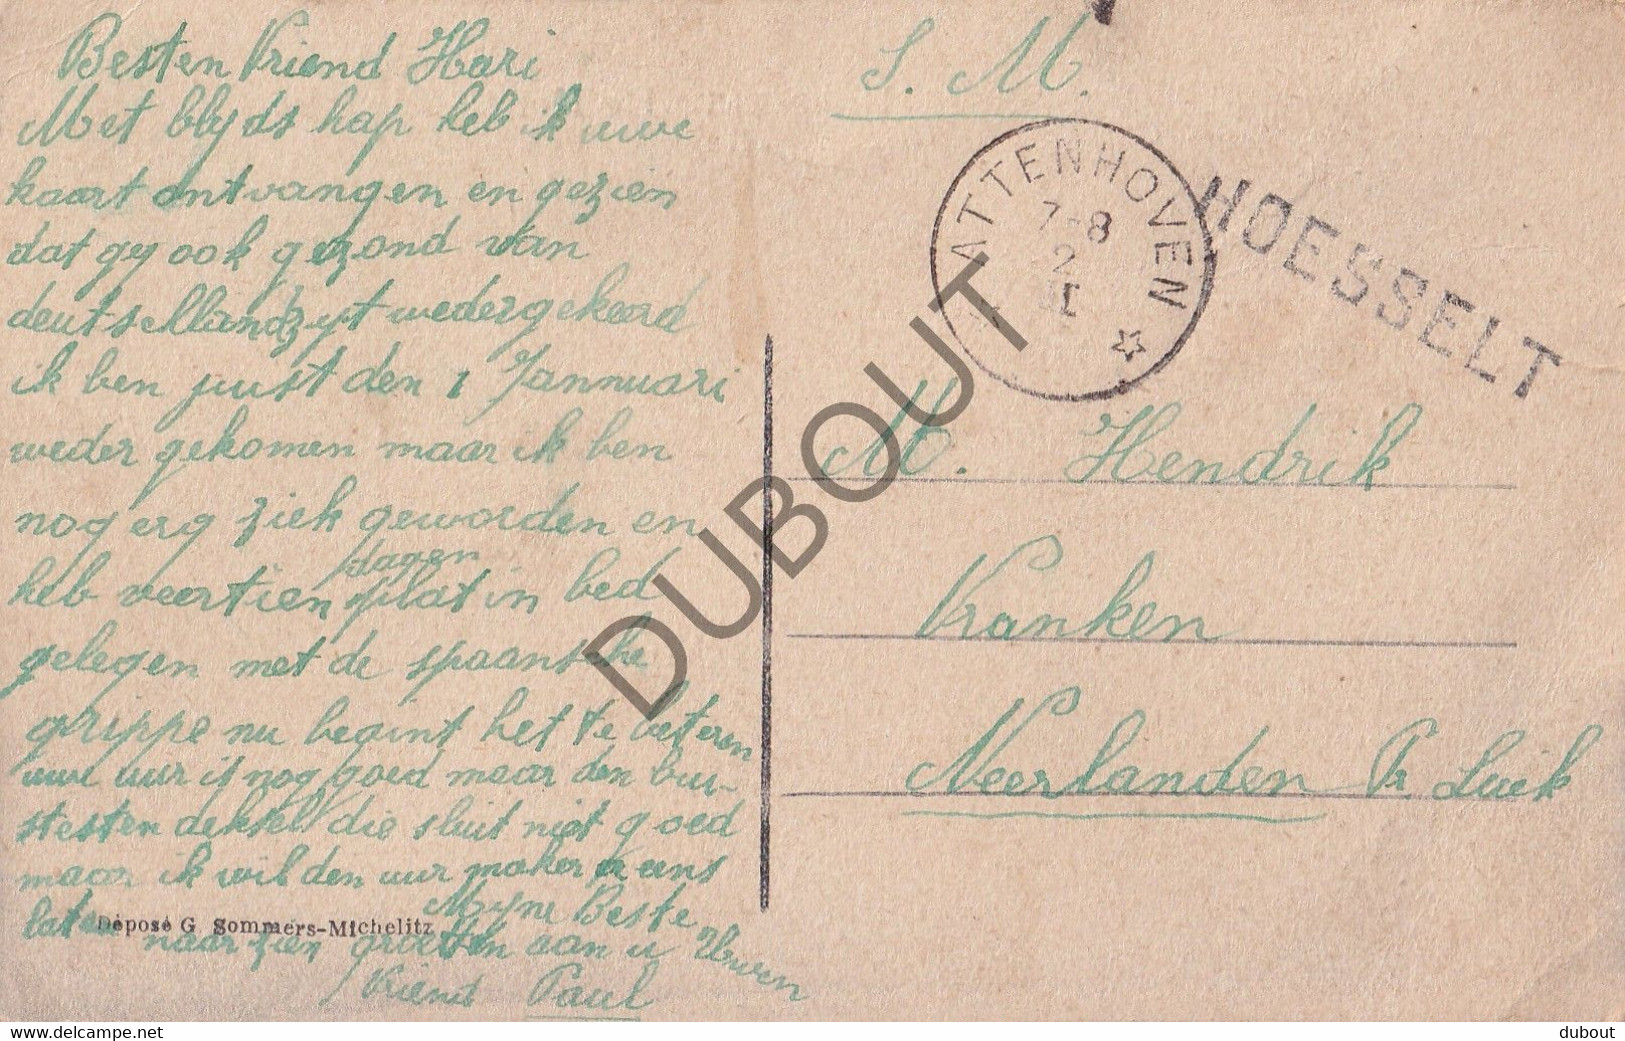 Besten Vriend Hari
Met blyds kap heb ik uwe
kaart ontvangen en gezien
dat gy ook gezond van
deutsellandzyt wedergekeerd
ik ben juist den 1 Jannuari
weder gekomen maar ik ben
nog erg ziek geworden en
dagen
heb veertien plat in bed
gelegen met de spaansche
grippe nu begint het te beteren
uwe uur is nog goed maar den buu-
stesten deksel die sluit niet goed
maar ik wil den uur maker er eens
laten naar zien
Myne Beste
groetten aan u Uwen
Vriend Paul
Déposé G Sommers-Michelitz
S. M.
ATTENHOVEN
7-8
2
HOESSELT
M. Hendrik
Vranken
Neerlanden Pr Luik
DUBOUT
delcampe.net
dubout